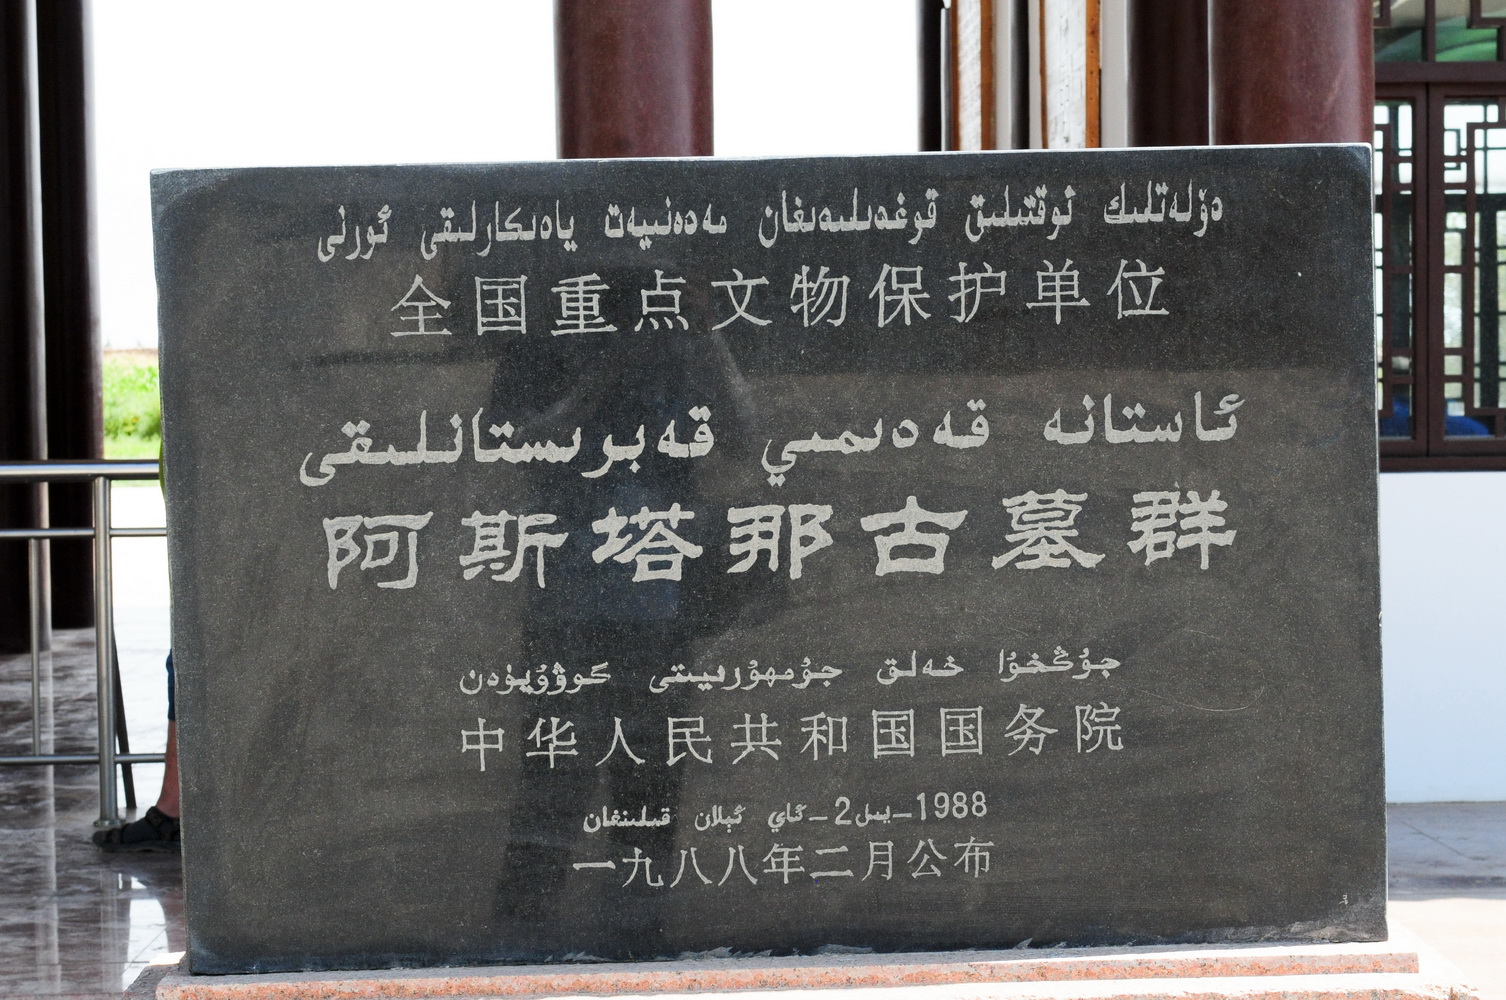 دۆلەتلىك نوقتىلىق قوغدىلىدىغان مەدەنىيەت يادىكارلىقى ئورنى
全国重点文物保护单位
ئاستانە قەدىمىي قەبرىستانلىقى
阿斯塔那古墓群
جۇڭخۇا خەلق جۇمھۇرىيىتى گوۋۇيۈەن
中华人民共和国国务院
1988-يىل 2-ئاي ئېلان قىلىنغان
一九八八年二月公布